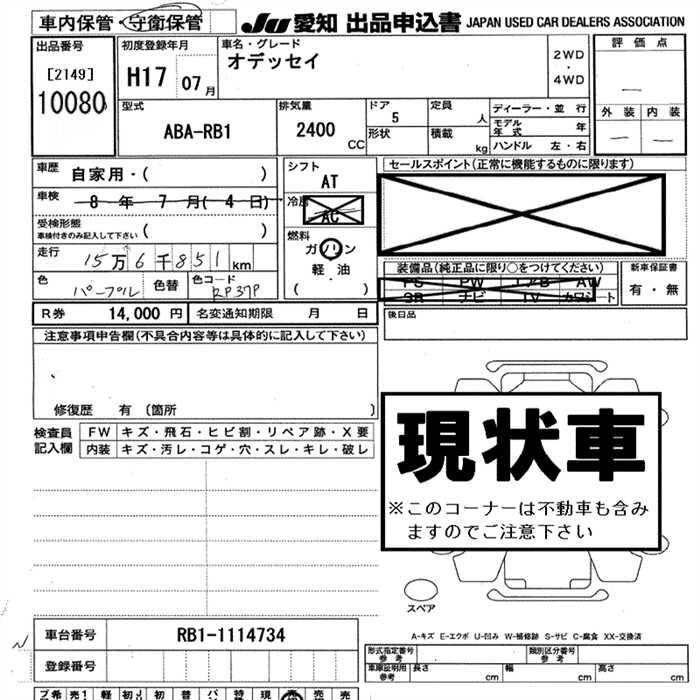 車内保管・守衛保管
JU 愛知 出品申込書 JAPAN USED CAR DEALERS ASSOCIATION
出品番号
[2149]
10080
初度登録年月
H17 07月
車名・グレード
オデッセイ
2WD
・
4WD
評価点
—
外装 内装
— —
型式
ABA-RB1
排気量
2400
CC
ドア
5
形状
定員
人
積載
kg
ディーラー・並行
モデル年式 年
ハンドル 左・右
車歴
自家用・( )
車検
8 年 7 月( 4 日)
受検形態
車検付きのみ記入して下さい ( )
走行
15万6千851km
色
パープル
色替
色コード
RP37P
シフト
AT
冷房
AC
燃料
ガソリン
軽・油
( )
セールスポイント(正常に機能するものに限ります)
装備品(純正品に限り○をつけてください)
PS PW エアB AW
SR ナビ TV カワシート
新車保証書
有・無
R券 14,000 円 名変通知期限 月 日
後日品
注意事項申告欄(不具合内容等は具体的に記入して下さい)
修復歴 有 〔箇所 〕
検査員記入欄
FW キズ・飛石・ヒビ割・リペア跡・X要
内装 キズ・汚レ・コゲ・穴・スレ・キレ・破レ
現状車
※このコーナーは不動車も含み
ますのでご注意下さい
スペア
A-キズ E-エクボ U-凹み W-補修跡 S-サビ C-腐食 XX-交換済
車台番号 RB1-1114734
登録番号
形式指定番号
参考
類別区分番号
参考
車庫証明用
参考
長さ cm 幅 cm 高さ cm